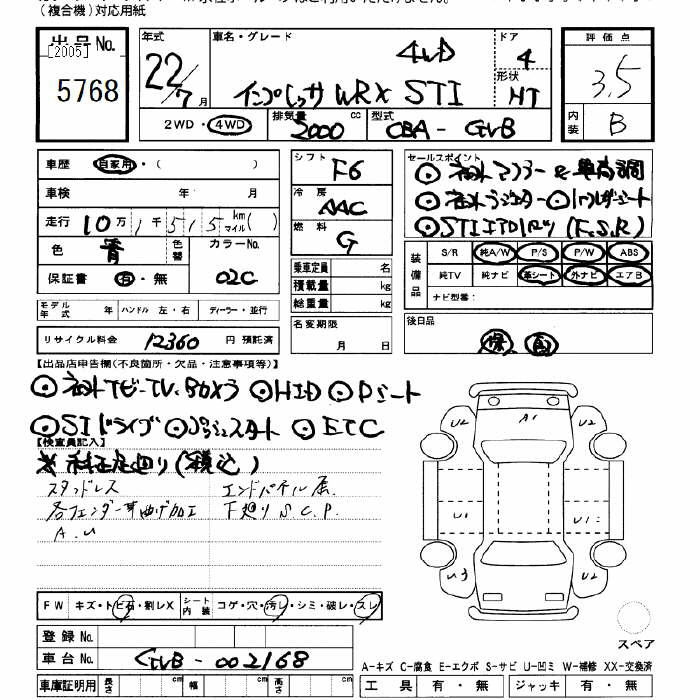 (複合機)対応用紙
出品No.
[2005]
5768
年式
22/7月
車名・グレード
4WD
インプレッサ WRX STI
ドア
4
形状
HT
評価点
3.5
内装
B
2WD・4WD
排気量
2000 cc
型式
CBA-GVB
車歴 自家用・( )
車検 年 月
走行 10万1千515km マイル( )
色 青
色替
カラーNo. 02C
保証書 有・無
シフト F6
冷房 AAC
燃料 G
乗車定員 名
積載量 kg
総重量 kg
名変期限
月 日
セールスポイント
装備品
S/R 純A/W P/S P/W ABS
純TV 純ナビ 革シート 外ナビ エアB
ナビ型番:
後日品
モデル年式 年 ハンドル 左・右 ディーラー・並行
リサイクル料金 12360 円 預託済
【出品店申告欄(不良箇所・欠品・注意事項等)】
HID Dシート
SIドライブ プッシュスタート ETC
【検査員記入】
スタッドレス
エンドパネル
下廻りS.C.P.
A.U
A1
U2
U2
U1
U1
U3
U2
FW キズ・トビ石・割レX
シート内装 コゲ・穴・汚レ・シミ・破レ・スレ
登録No.
車台No. GVB-002168
車庫証明用 長さ cm 幅 cm 高さ cm
スペア
A-キズ C-腐食 E-エクボ S-サビ U-凹ミ W-補修 XX-交換済
工具 有・無 ジャッキ 有・無